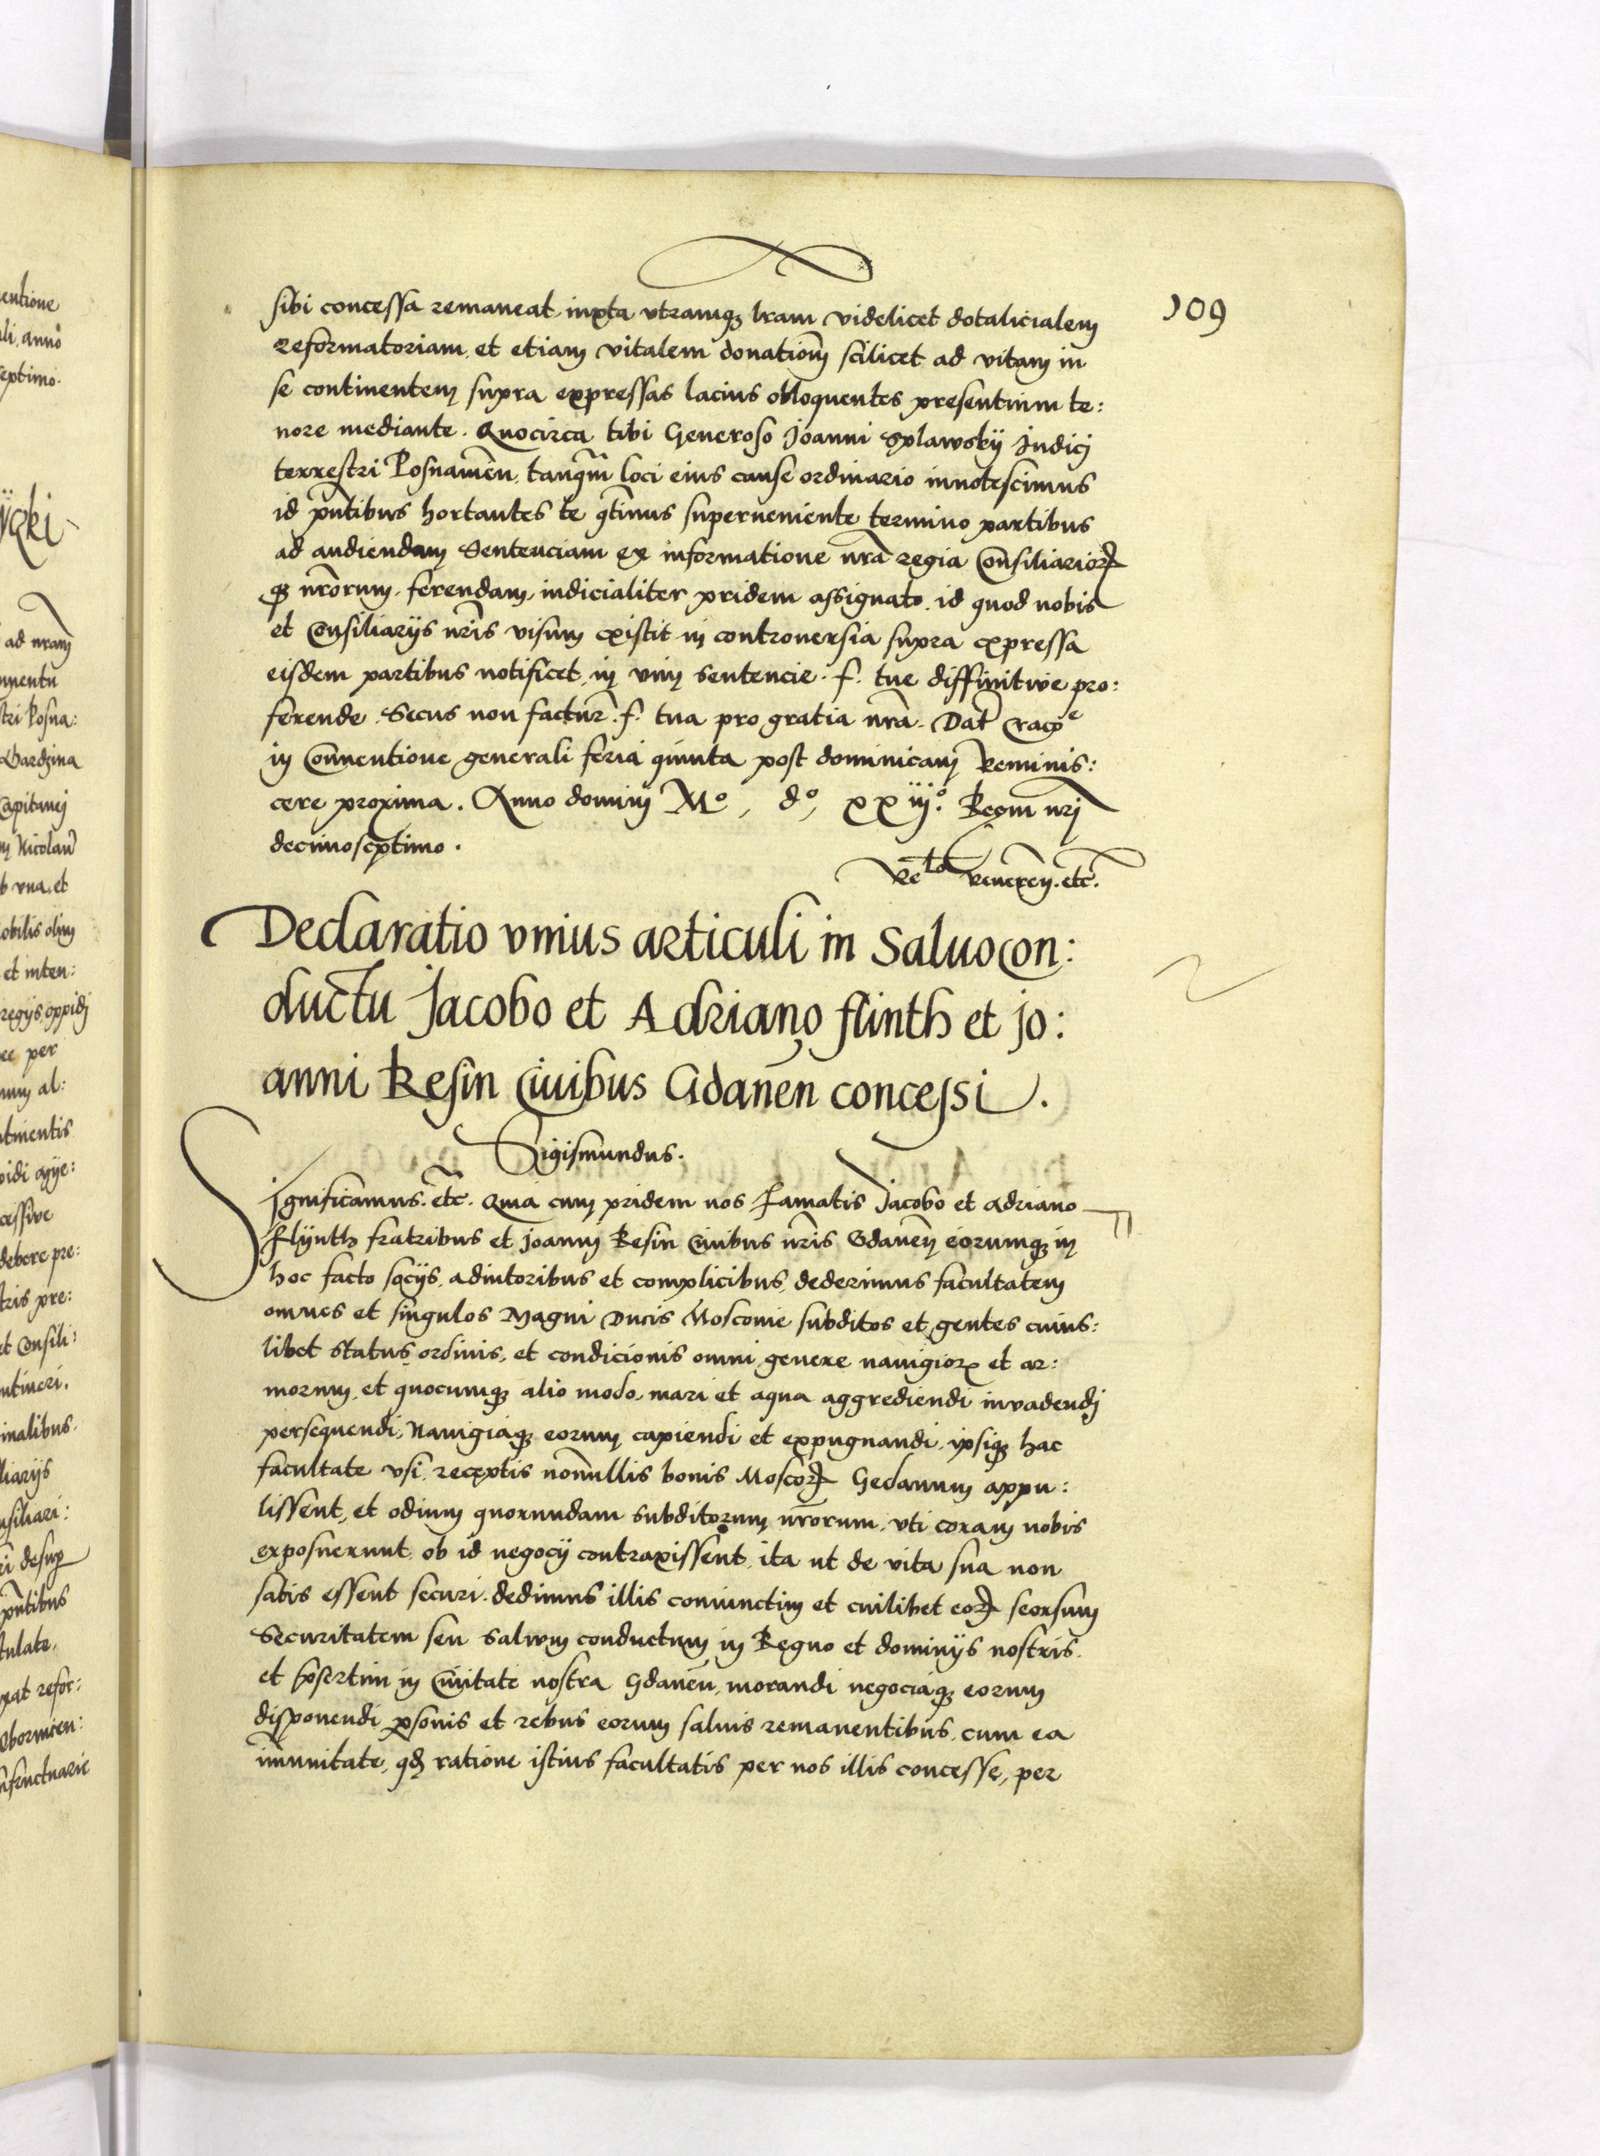 109
sibi concessa remaneat iuxta vtramq; lram videlicet dotalicialem
reformatoriam et etiam vitalem donationem scilicet ad vitam in
se continentem supra expressas lacius obloquentes presentium te:
nore mediante. Quocirca tibi Generoso Joanni Splawskÿ Judici
terrestri Posnanien̄. tanqm̄ loci eius cause ordinario innotescimus
id pn̄tibus hortantes te q̄tinus superueniente termino partibus
ad audiendam Sentenciam ex informatione nr̄a regia Consiliarioꝝ
q; nr̄orum. ferendam. iudicialiter pridem assignato. id quod nobis
et Consiliarijs nr̄is visum existit in controuersia supra expressa
eisdem partibus notificet. in vim sentencie. f. tue diffinitiue pro:
ferende. Secus non factur̄. f. tua pro gratia nr̄a. Dat̄ Craco͛
in Conuentione generali feria quinta post dominicam Reminis:
cere proxima. Anno domini Mº, dº, xxiijº. Regni nr̄i
decimoseptimo.
Reˡᵒ Reueren̄. etc̄.
Declaratio vnius articuli in Saluocon:
ductu Jacobo et Adriano flinth et Jo:
anni Resin Ciuibus Gdanen̄ concessi.
Sigismundus.
Significamus. etc̄. Quia cum pridem nos Famatis Jacobo et Adriano
flÿnth fratribus et Joanni Resin Ciuibus nr̄is Gdanen̄ eorumq; in
hoc facto socijs. adiutoribus et complicibus. dederimus facultatem
omnes et singulos Magni Ducis Moscouie subditos et gentes cuius:
libet status ordinis. et condicionis omni genere nauigioꝝ et ar:
morum. et quocumq; alio modo. mari et aqua aggrediendi inuadendi
persequendi. Nauigiaq; eorum capiendi et expugnandi. ipsiq; hac
facultate vsi. receptis nonnullis bonis Moscoꝝ Gedanum appu:
lissent, et odium quorundam subditorum nr̄orum. vti coram nobis
exposuerunt. ob id negocij contraxissent. ita ut de vita sua non
satis essent securi. dedimus illis coniunctim et cuilibet eoꝝ seorsum
Securitatem seu Saluum conductum in Regno et dominijs nostris.
et p̄sertim in Ciuitate nostra Gdanen̄. morandi negociaq; eorum
disponendi ꝑsonis et rebus eorum saluis remanentibus. cum ea
imunitate, qđ ratione istius facultatis per nos illis concesse, per